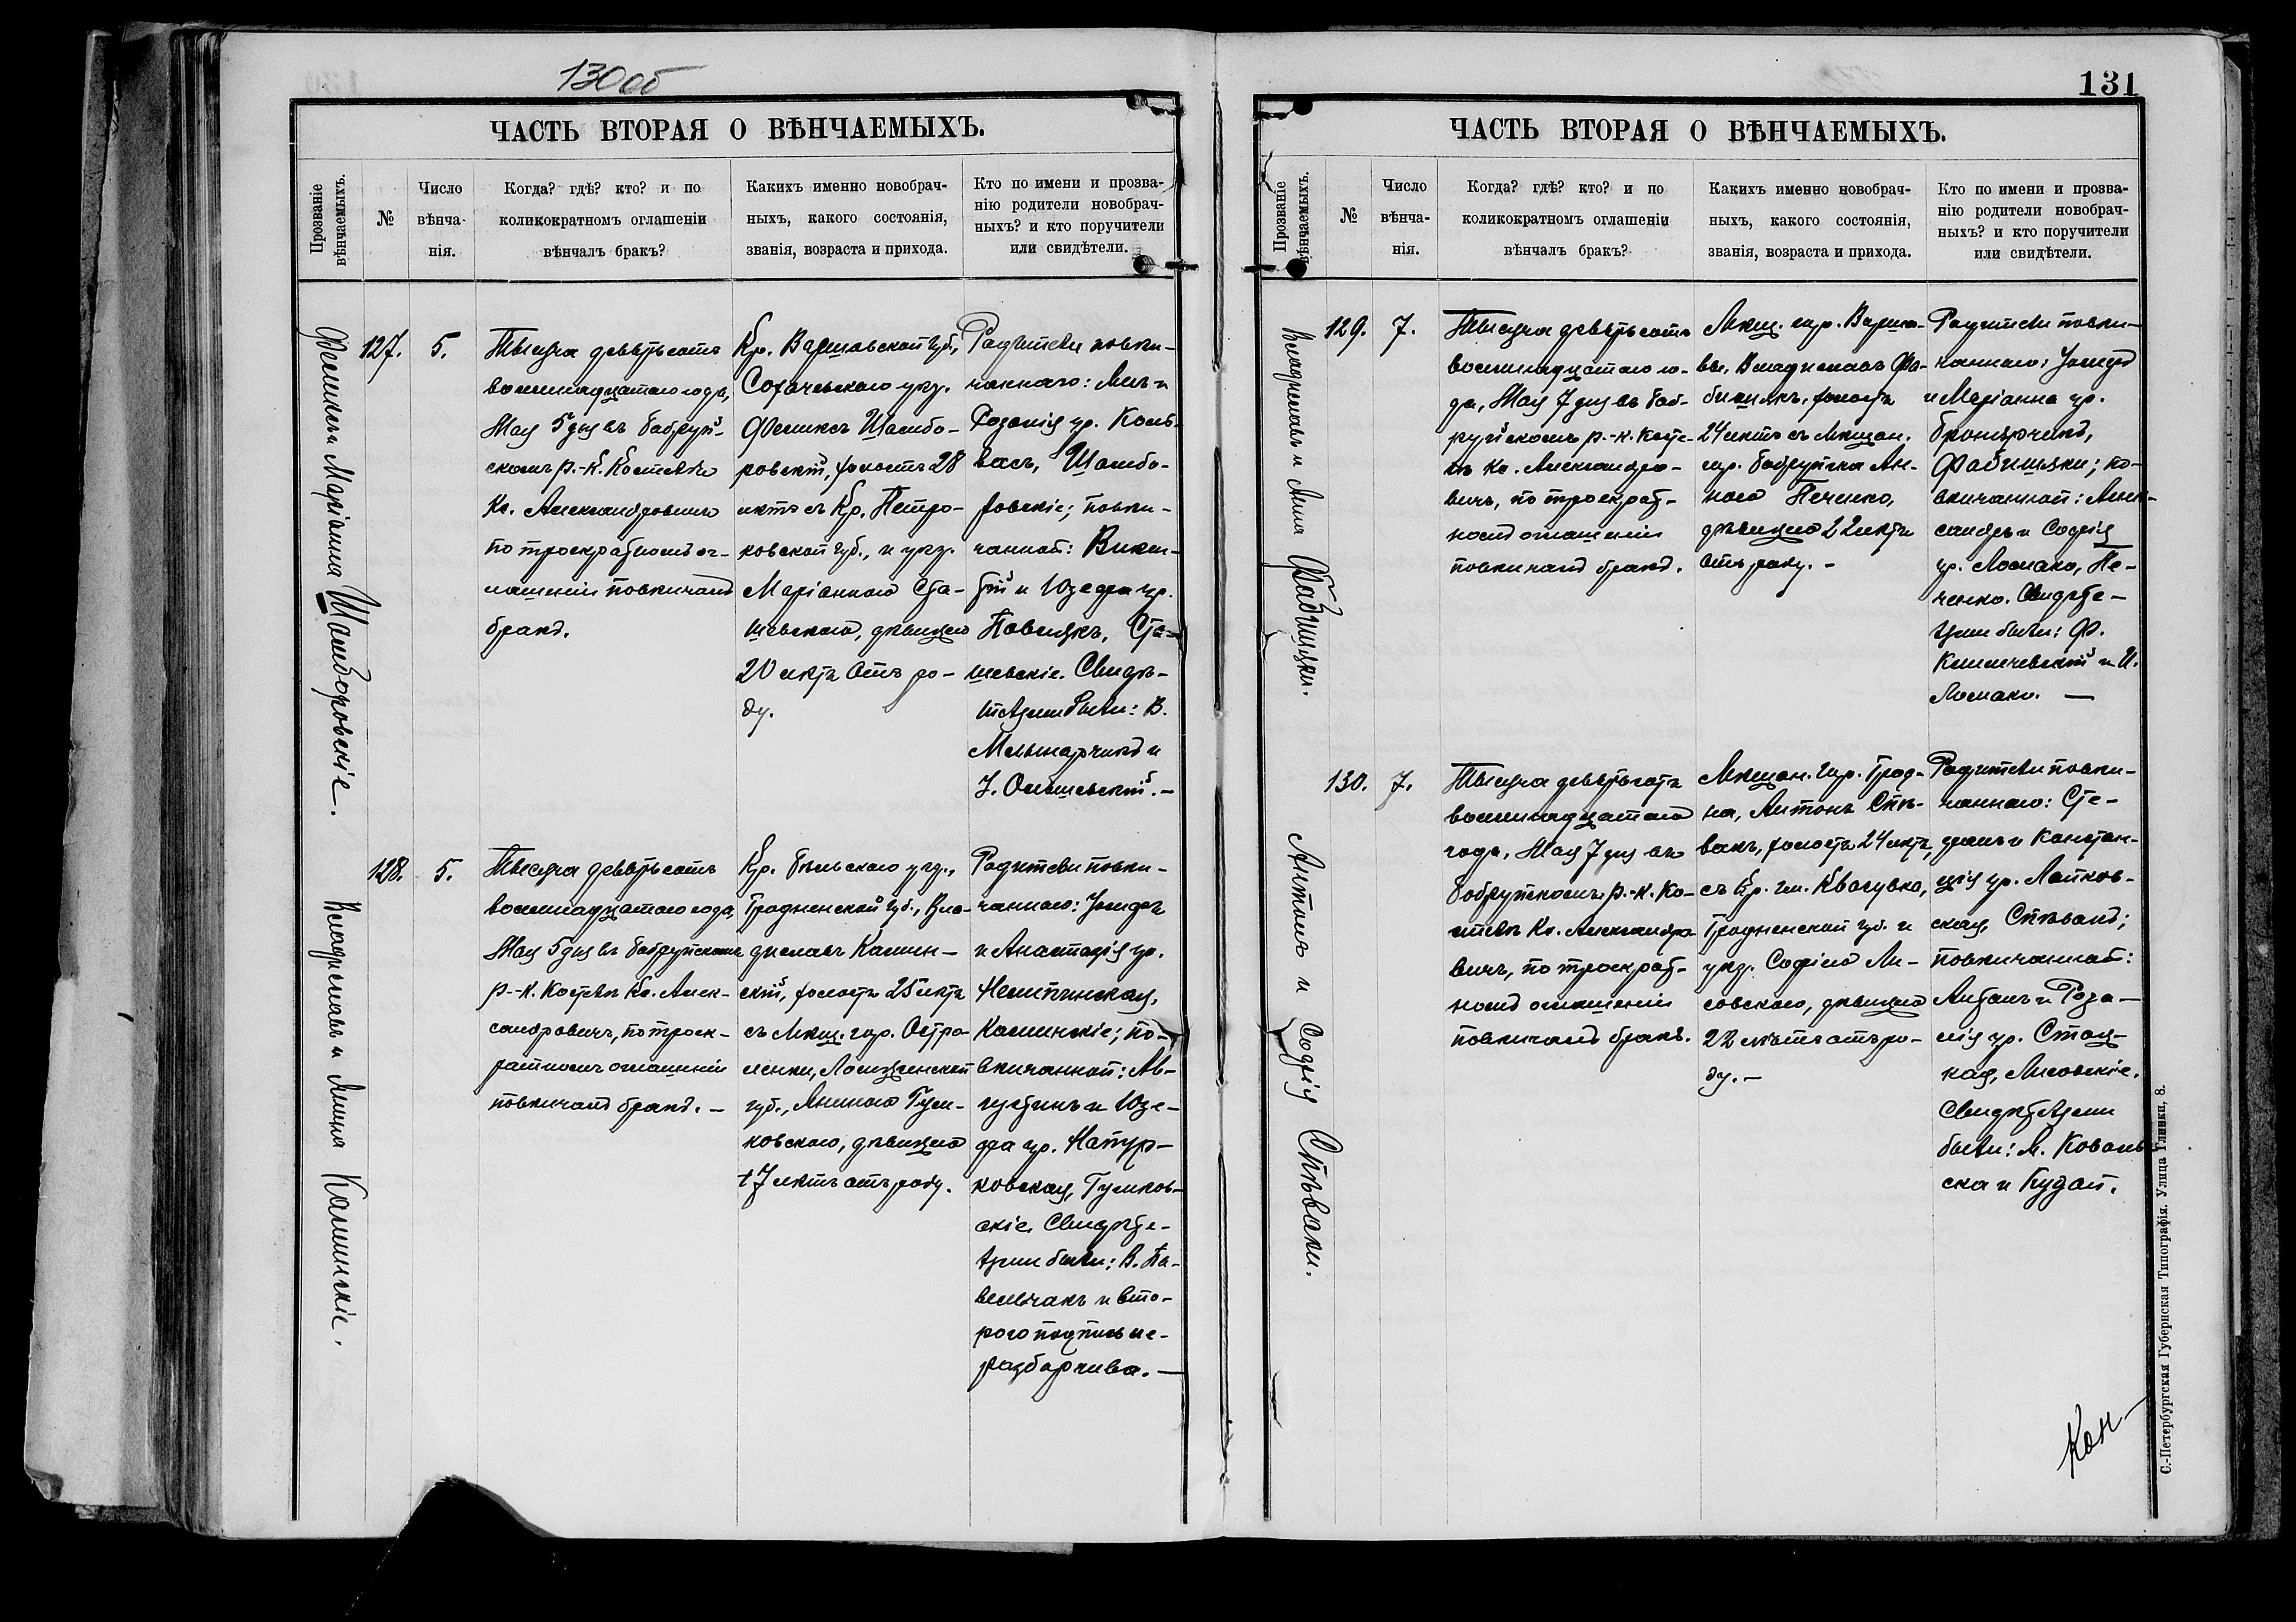 130 об
ЧАСТЬ ВТОРАЯ О ВѢНЧАЕМЫХЪ.
Прозваніе
вѣнчаемыхъ.
№
Число
вѣнча-
нія.
Когда? гдѣ? кто? и по
коликократномъ оглашеніи
вѣнчалъ бракъ?
Какихъ именно новобрач-
ныхъ, какого состоянія,
званія, возраста и прихода.
Кто по имени и прозва-
нію родители новобрач-
ныхъ? и кто поручители
или свидѣтели.
Феликсъ и Маріанна Шамборовскіе.
127.
5.
Тысяча девятьсотъ
восемнадцатаго года,
Мая 5 дня въ Бобруй-
скомъ р.-к. Костелѣ
Кс. Александровичъ
по троекратномъ ог-
лашеніи повѣнчалъ
бракъ.
Кр. Варшавской губ.,
Сохачевскаго уѣзд.
Феликсъ Шамбо-
ровскій, холостъ 28
лѣтъ съ Кр. Петро-
ковской губ., и уѣзд.
Маріанною Ста-
шевскою, дѣвицею
20 лѣтъ отъ ро-
ду.
Родители повѣн-
чаннаго:
Розалія ур.
Шамбо-
ровскіе; повѣн-
чанной: Викен-
тій и Юзефа ур.
Новицкъ, Ста-
шевскіе. Свидѣ-
телями были: В.
Мельнарчикъ и
І. Ольшевскій.-
Владиславъ и Янина Калинскіе.
128.
5.
Тысяча девятьсотъ
восемнадцатаго года,
Мая 5 дня въ Бобруйскомъ
р.-к. Костелѣ Кс. Алек-
сандровичъ, по троек-
ратномъ оглашеніи
повѣнчалъ бракъ. -
Кр. Бѣльскаго уѣзд.,
Гродненской губ., Вла-
диславъ Калин-
скій, холостъ 25 лѣтъ
съ Мѣщ. гор. Остро-
ленки, Ломжинской
губ., Яниною Гул-
ковскою, дѣвицею
17 лѣтъ отъ роду.
Родители повѣн-
чаннаго: Іосифъ
и Анастазія ур.
Калинскіе; по-
вѣнчанной: Ав-
густинъ и Юзе-
фа ур. Натур-
ковская, Гулков-
скіе. Свидѣте-
лями были: В. Па-
вельчакъ и вто-
рого подпись не-
разборчива. -
131
ЧАСТЬ ВТОРАЯ О ВѢНЧАЕМЫХЪ.
Прозваніе
вѣнчаемыхъ.
№
Число
вѣнча-
нія.
Когда? гдѣ? кто? и по
коликократномъ оглашеніи
вѣнчалъ бракъ?
Какихъ именно новобрач-
ныхъ, какого состоянія,
званія, возраста и прихода.
Кто по имени и прозва-
нію родители новобрач-
ныхъ? и кто поручители
или свидѣтели.
Владиславъ и Анна
129.
7.
Тысяча девятьсотъ
восемнадцатаго го-
да, Мая 7 дня въ Боб-
руйскомъ р.-к. Косте-
лѣ Кс. Александро-
вичъ, по троекрат-
номъ оглашеніи
повѣнчалъ бракъ.
Мѣщ. гор. Варша-
вы, Владиславъ Фа-
бишякъ, холостъ
24 лѣтъ съ мѣщан.
гор. Бобруйска Ан-
ною Печенко,
дѣвицею 22 лѣтъ
отъ роду. -
Родители повѣн-
чаннаго: Іосифъ
и Маріанна ур.
Бронярчикъ,
Фабишяки; по-
вѣнчанной: Алек-
сандръ и Софія
ур. Ломако, Пе-
ченко. Свидѣте-
лями были: Ф.
Климчевскій и И.
Ломако. -
Антонъ и Софія Спѣваки.
130.
7.
Тысяча девятьсотъ
восемнадцатаго
года, Мая 7 дня въ
Бобруйскомъ р.-к. Ко-
стелѣ Кс. Александро-
вичъ, по троекрат-
номъ оглашеніи
повѣнчалъ бракъ.
Мѣщан. гор. Грод-
на, Антонъ Спѣ-
вакъ, холостъ 24 лѣтъ,
съ Кр. им. Квасувка,
Гродненской губ. и
уѣзд. Софіею Ли-
совскою, дѣвицею
22 лѣтъ отъ ро-
ду. -
Родители повѣн-
чаннаго: Сте-
фанъ и Констан-
ція ур. Лапков-
ская, Спѣваки;
повѣнчанной:
Антонъ и Роза-
лія ур. Стац-
кая, Лисовскіе.
Свидѣтелями
были: М. Коваль-
ска и Кудай.
Кон-
С.-Петербургская Губернская Типографія. Улица Глинки, 8.